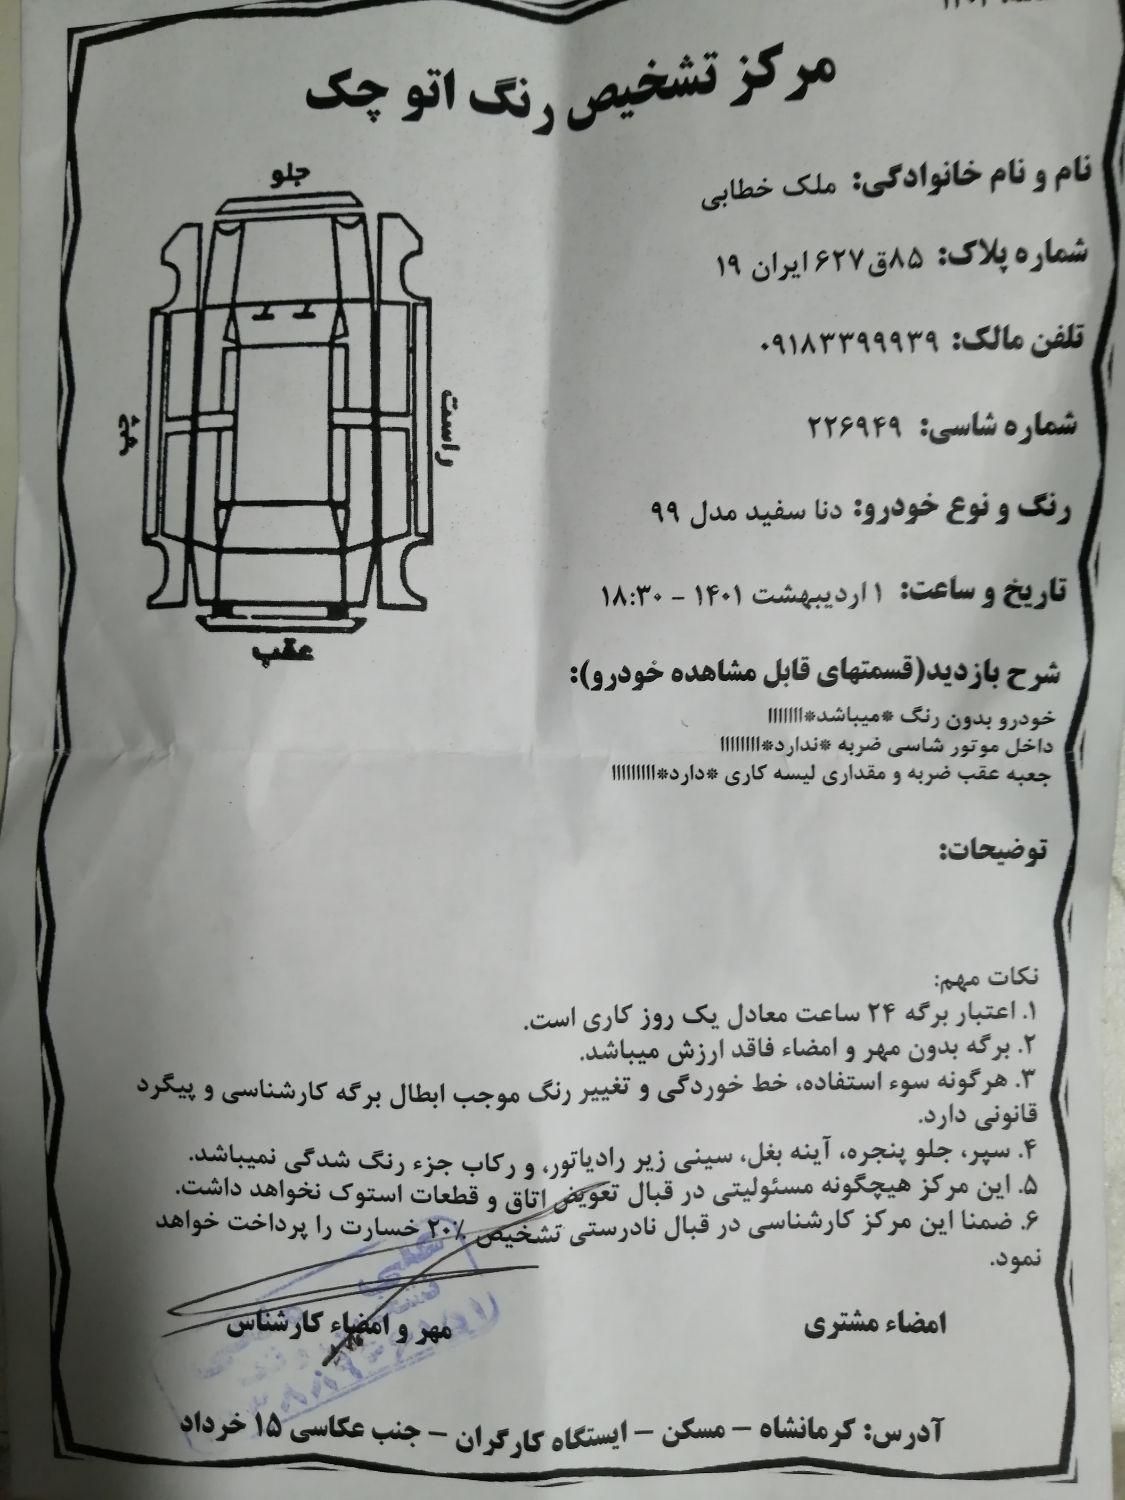 مرکز تشخیص رنگ اتو چک
جلو
چپ
راست
عقب
نام و نام خانوادگی: ملک خطابی
شماره پلاک: ۸۵ق۶۲۷ ایران ۱۹
تلفن مالک: ۰۹۱۸۳۳۹۹۹۳۹
شماره شاسی: ۲۲۶۹۴۹
رنگ و نوع خودرو: دنا سفید مدل ۹۹
تاریخ و ساعت: ۱ اردیبهشت ۱۴۰۱ - ۱۸:۳۰
شرح بازدید(قسمتهای قابل مشاهده خودرو):
خودرو بدون رنگ *میباشد*ااااااا
داخل موتور شاسی ضربه *ندارد*اااااااا
جعبه عقب ضربه و مقداری لیسه کاری *دارد*ااااااااا
توضیحات:
نکات مهم:
۱. اعتبار برگه ۲۴ ساعت معادل یک روز کاری است.
۲. برگه بدون مهر و امضاء فاقد ارزش میباشد.
۳. هرگونه سوء استفاده، خط خوردگی و تغییر رنگ موجب ابطال برگه کارشناسی و پیگرد
قانونی دارد.
۴. سپر، جلو پنجره، آینه بغل، سینی زیر رادیاتور، و رکاب جزء رنگ شدگی نمیباشد.
۵. این مرکز هیچگونه مسئولیتی در قبال تعویض اتاق و قطعات استوک نخواهد داشت.
۶. ضمنا این مرکز کارشناسی در قبال نادرستی تشخیص ۲۰٪ خسارت را پرداخت خواهد
نمود.
امضاء مشتری
مهر و امضاء کارشناس
آدرس: کرمانشاه – مسکن – ایستگاه کارگران – جنب عکاسی ۱۵ خرداد